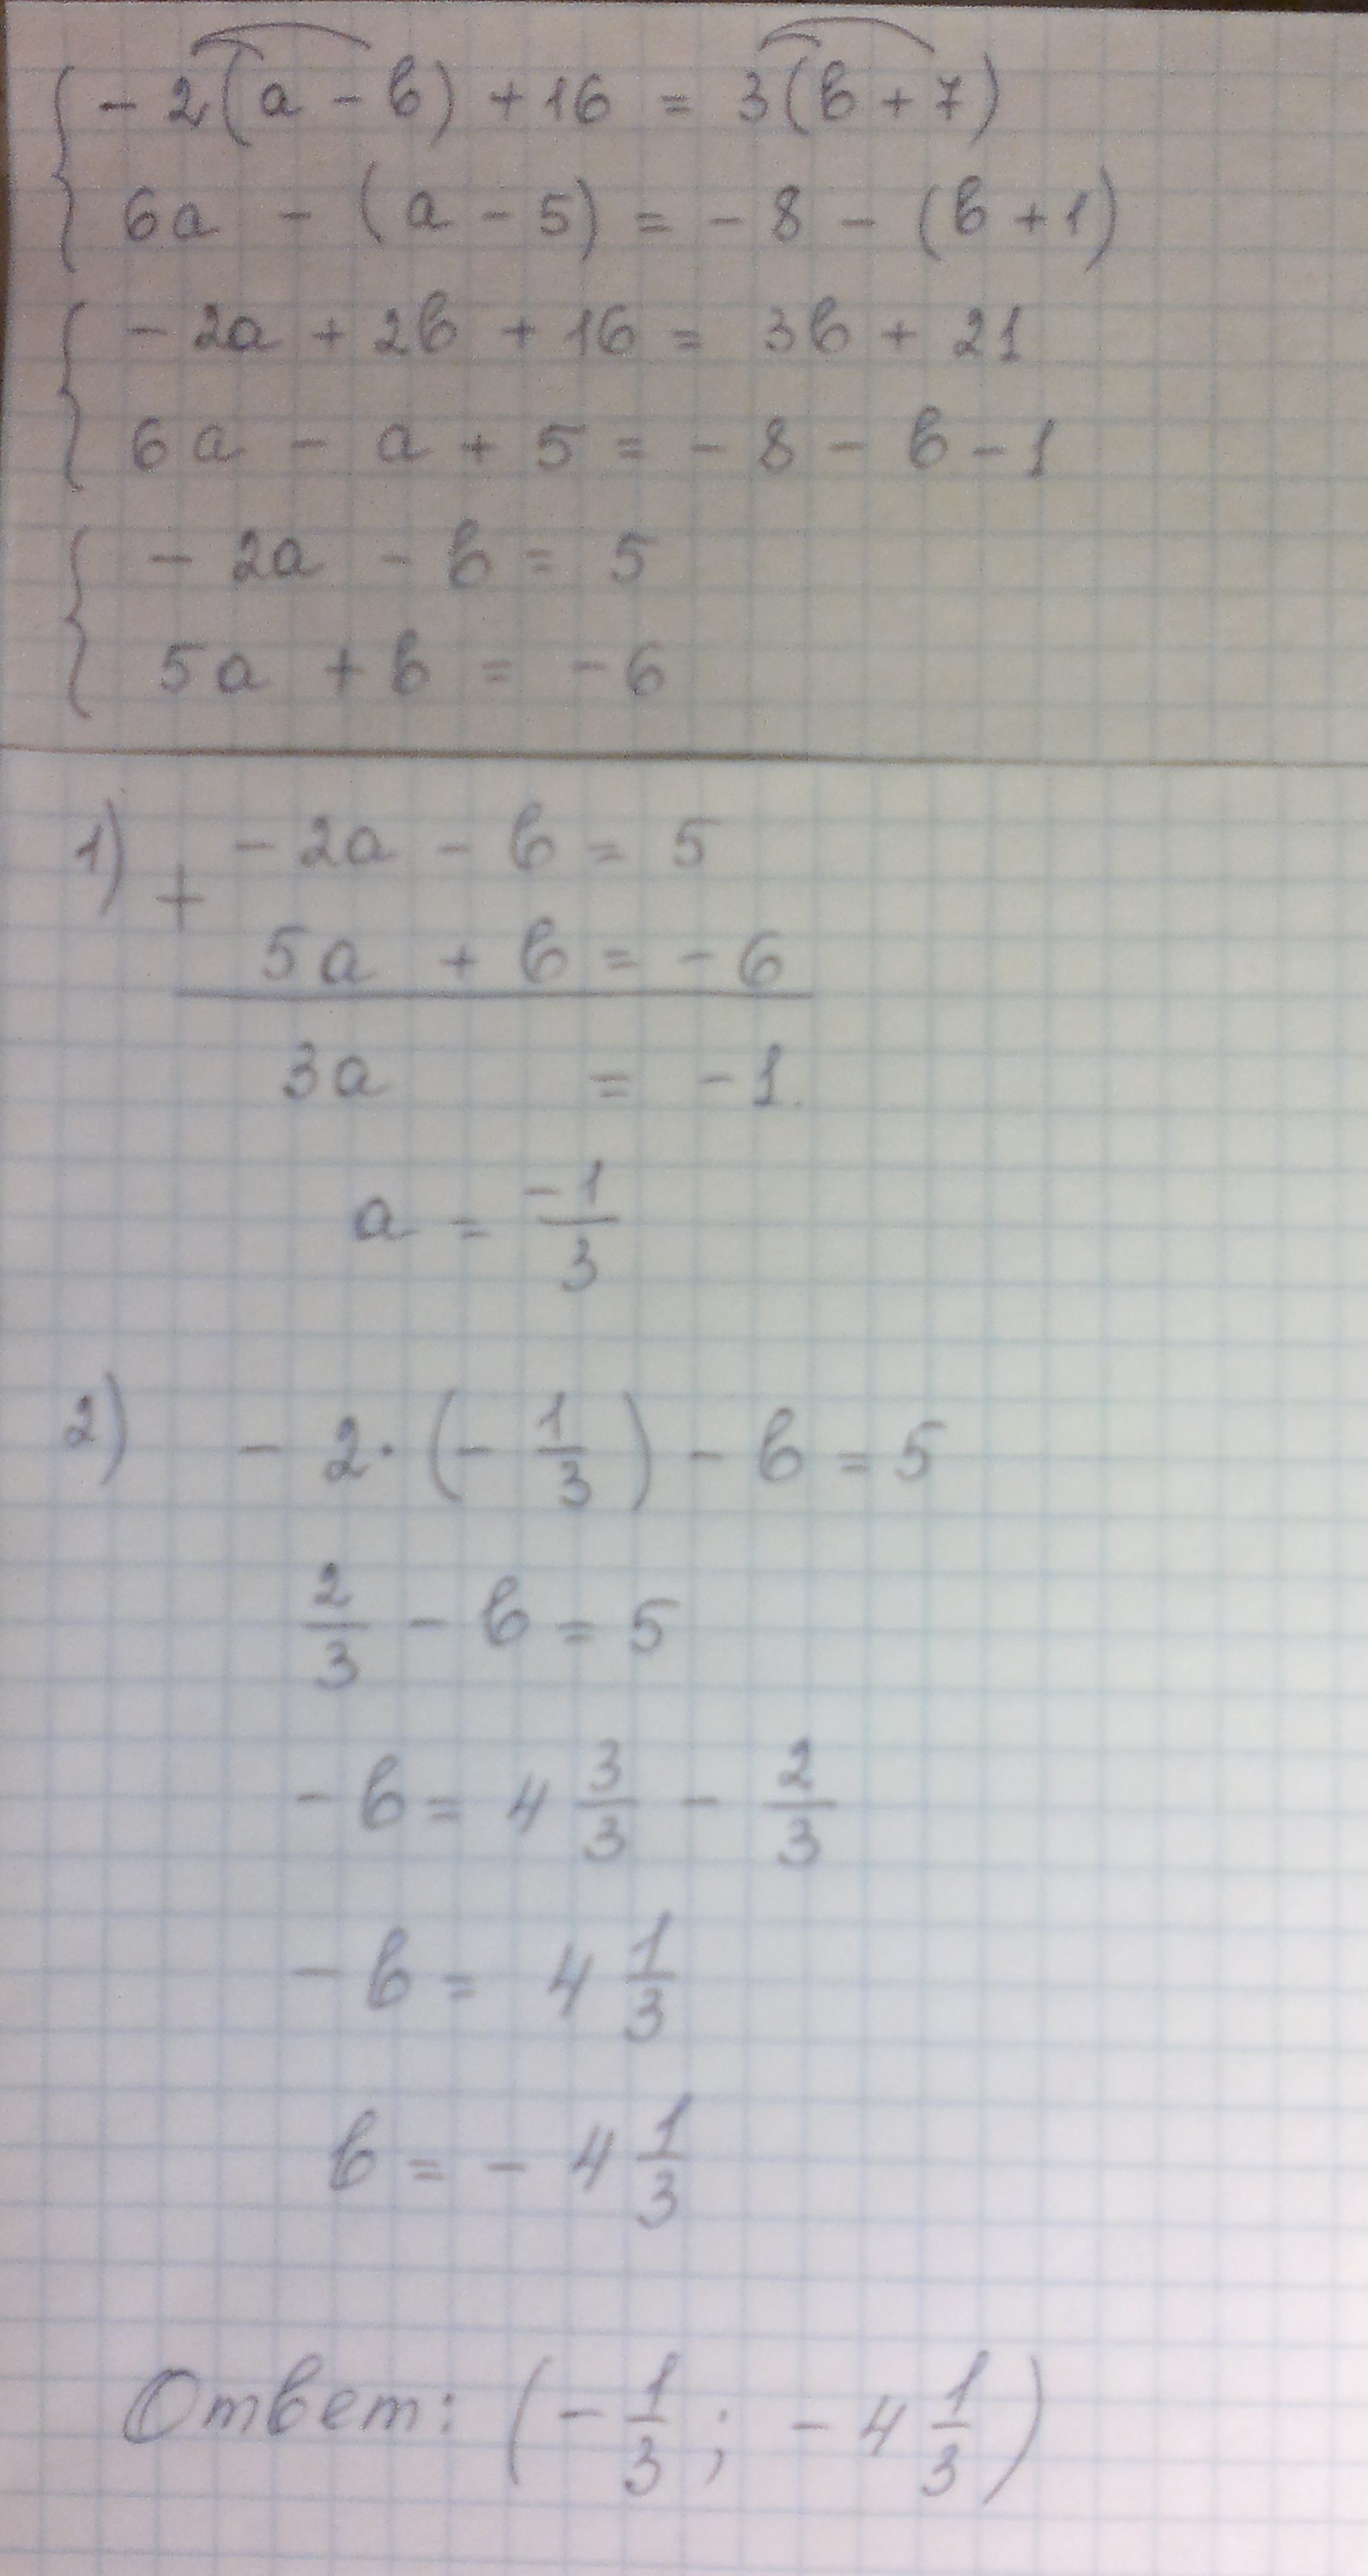 { - 2(a - b) + 16 = 3(b + 7)
6a - (a - 5) = - 8 - (b + 1)
{ - 2a + 2b + 16 = 3b + 21
6a - a + 5 = - 8 - b - 1
{ - 2a - b = 5
5a + b = - 6
1) + - 2a - b = 5
5a + b = - 6
3a = - 1
a = -1/3
2) - 2 · (- 1/3) - b = 5
2/3 - b = 5
- b = 4 3/3 - 2/3
- b = 4 1/3
b = - 4 1/3
Ответ: (- 1/3 ; - 4 1/3)